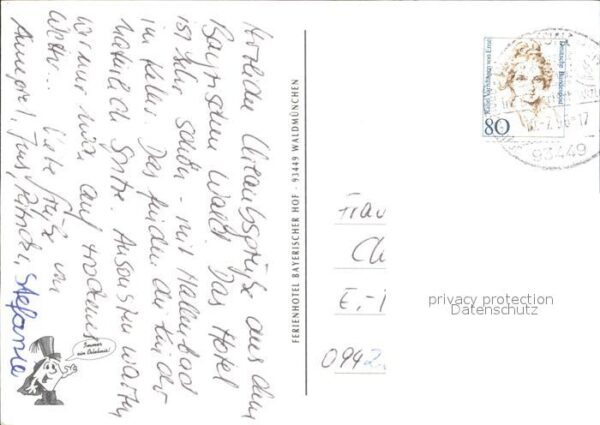 Herzliche Urlaubsgrüße aus dem
Bayrischen Wald. Das Hotel
ist sehr schön - mit Hallenbad
im Keller. Das finden die Kinder
natürlich Spitze. Ansonsten warten
wir nur noch auf trockenes
Wetter. Liebe Grüße von
Annegret, Jens,
Stefanie
Immer
ein Erlebnis!
FERIENHOTEL BAYERISCHER HOF · 93449 WALDMÜNCHEN
Deutsche Bundespost
Rahel Varnhagen von Ense
80
17
93449
Frau
E.-
094
privacy protection
Datenschutz